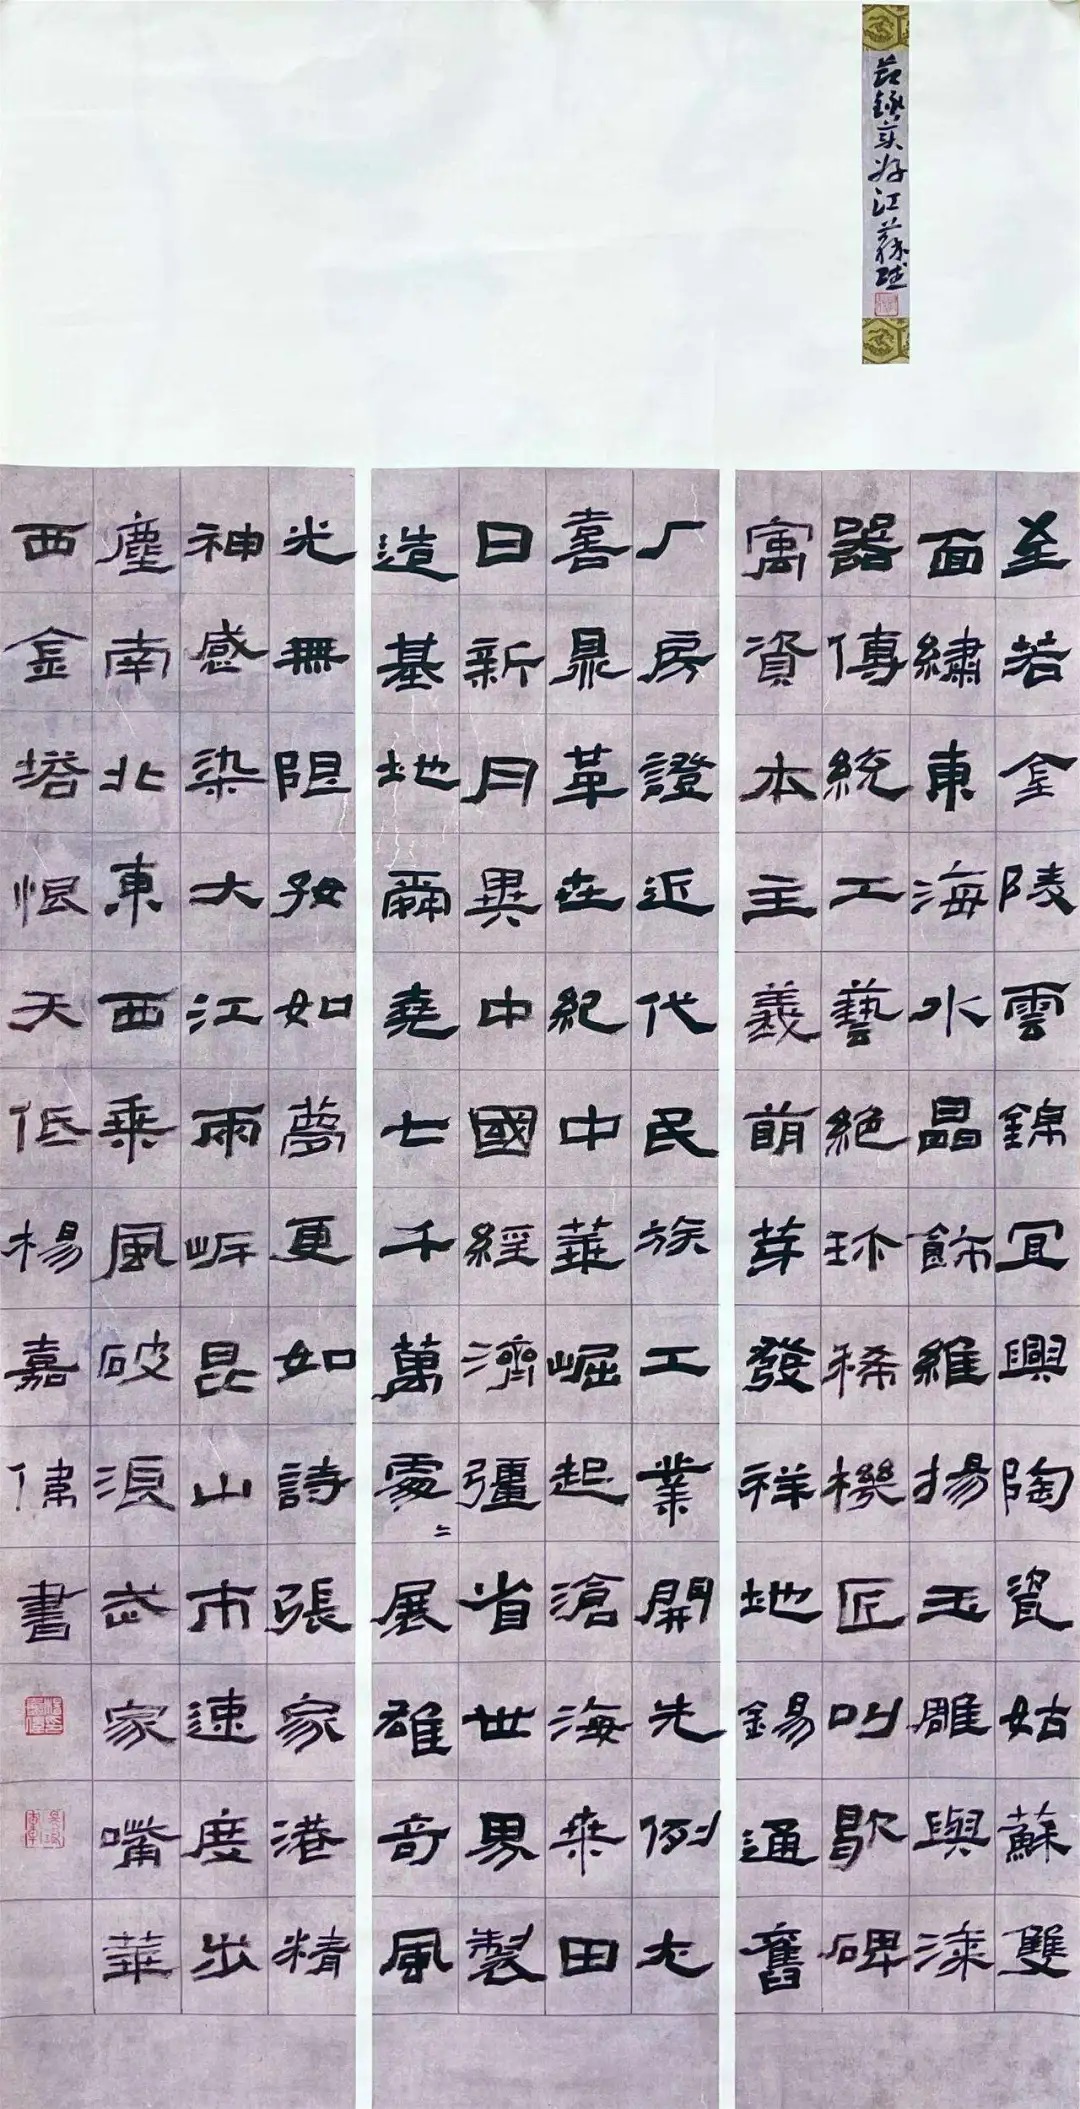 節録美好江蘇賦
至若金陵雲錦宜興陶瓷姑蘇雙
面繡東海水晶飾維揚玉雕與漆
器傳統工藝絕珎稀機匠叫歇碑
寓資本主義萌芽發祥地錫通舊
厂房證近代民族工業開先例尤
喜鼎革在紀中華崛起滄海桒田
日新月異中國經濟彊省世界製
造基地爾堯七千萬處〻展雄奇風
光無限孜如夢更如詩張家港精
神感染大江兩岸昆山市速度出
塵南北東西乘風破浪武家嘴華
西金塔恨天低楊嘉書